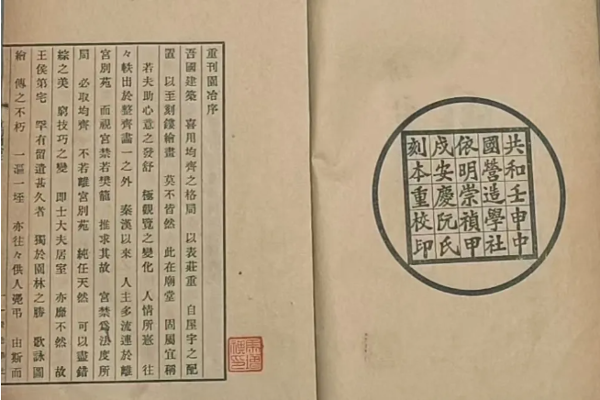 共和壬申中
國營造學社
依明崇禎甲
戌安慶阮氏
刻本重校印
重刊園冶序
吾國建築 喜用均齊之格局 以表莊重 自屋宇之配
置 以至刻鏤繪畫 莫不皆然 此在廟堂 固屬宜稱
若夫助心意之發舒 極觀覽之變化 人情所憙 往
々軼出於整齊畫一之外 秦漢以來 人主多流連於離
宮別苑 而視宮禁若樊籠 推求其故 宮禁爲法度所
局 必取均齊 不若離宮別苑 純任天然 可以盡錯
綜之美 窮技巧之變 即士大夫居室 亦靡不然 故
王侯第宅 罕有留遺甚久者 獨於園林之勝 歌詠圖
繪 傳之不朽 一漚一垤 亦往々供人憑弔 由斯而